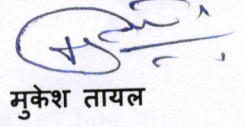 मुकेश तायल